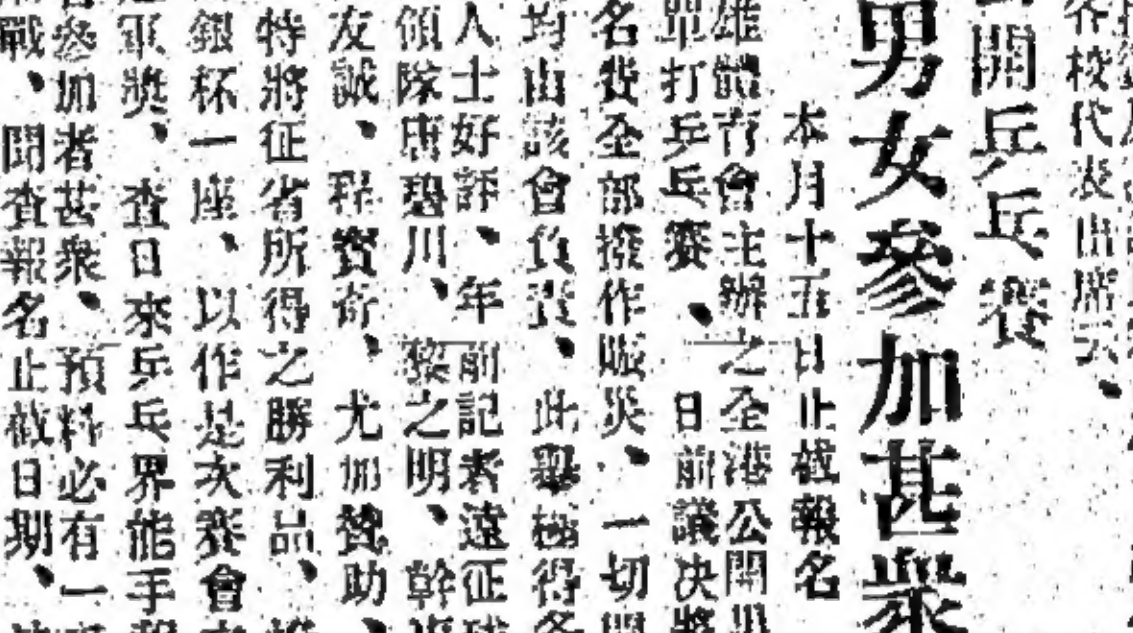 各校代表出席云、
開乒乓賽
男女參加甚衆
本月十五日止截報名
雄體育會主辦之全港公開單
單打乒乓賽、日前議决將
名費全部撥作賑災、一切開
均由該會負責、此舉極得各
人士好評、年前記者遠征球
領隊唐 川、黎之明、幹事
友誠、 寶奇、尤加贊助、
特將征省所得之勝利品、
銀杯一座、以作是次賽會
軍獎、查日來乒乓界能手報
參加者甚衆、預料必有一
戰、聞查報名止截日期、